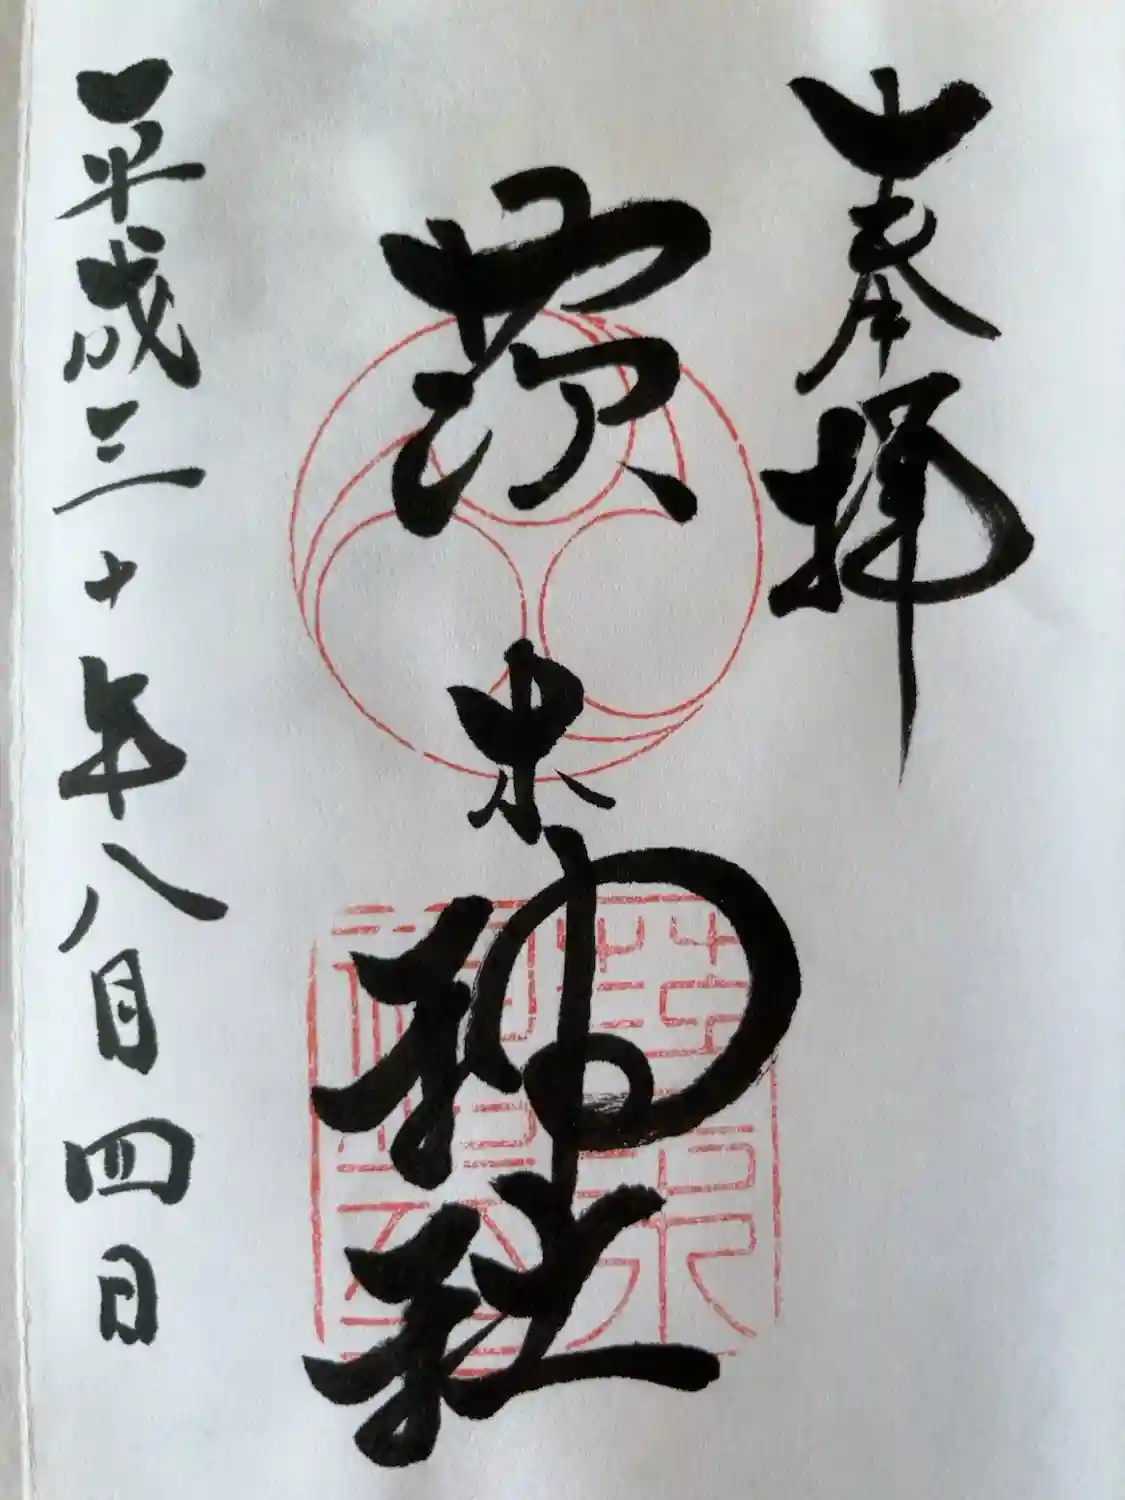 奉拝
茨木神社
平成三十年八月四日